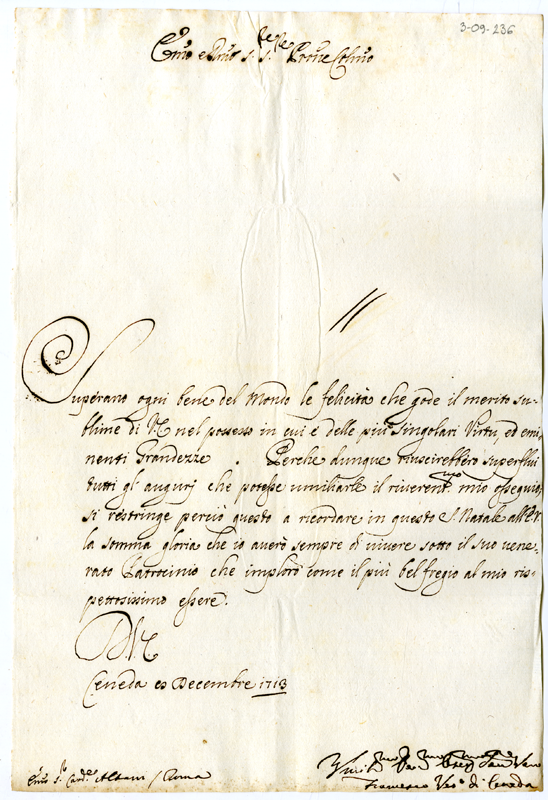 3-09-236
Emo e Rmo Sr. Sr. Prone Colmo
Superano ogni bene del Mondo le felicità che gode il merito su-
blime di V.E. nel possesso in cui è delle più singolari Virtù, ed emi
nenti Grandezze. Perche dunque riuscirebbero superflui
tutti gl' augurj che potesse umiliarle il riverentmo mio ossequio,
si restringe perciò questo a ricordare in questo S. Natale all' E.V.
la somma gloria che io averò sempre di vivere sotto il suo vene-
rato Patrocinio che imploro come il più bel fregio al mio ris-
pettosissimo essere.
D.V.E.
Ceneda Decembre 1713
Emo Sr. Cardle Albani / Roma
Francesco Veso di Ceneda